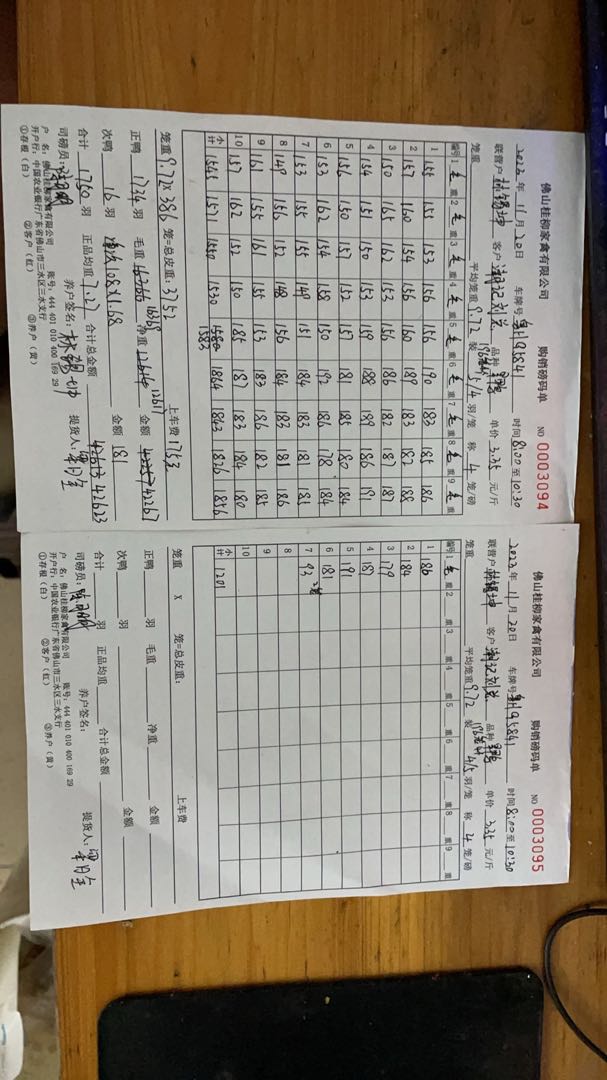 佛山桂柳家禽有限公司 购销磅码单 NO 0003094
2022年 11月 20日 车牌号 时间 8:00至10:30
联营户 客户 品种 单价 3.35 元/斤
笼重 平均笼重 9.72 装 5/4 羽/笼 称 4 笼/磅
编号 1 毛 重 2 毛 重 3 毛 重 4 毛 重 5 毛 重 6 毛 重 7 毛 重 8 毛 重 9 毛 重
1 155 151 153 156 156 190 183 185 186
2 157 160 154 156 160 189 183 182 188
3 150 165 162 153 156 186 182 187 187
4 154 151 150 153 159 188 189 186 191
5 156 150 157 152 157 181 185 180 184
6 153 162 154 158 150 192 186 178 184
7 153 155 155 149 151 184 183 181 181
8 149 156 152 148 156 184 183 181 186
9 161 155 161 155 153 183 186 182 185
10 157 162 152 150 185 187 183 184 180
小计 1545 1571 1550 1530 1583 1864 1843 1826 1856
笼重 9.72 x 386 笼=总皮重: 3752 上车费 1753
正鸭 1734 羽 毛重 16369 净重 12617 金额 42267
次鸭 16 羽 108X1.68 金额 181
合计 1750 羽 正品均重 7.27 合计总金额 42623
司磅员: 养户签名: 提货人:
户 名: 佛山桂柳家禽有限公司 账号: 444 401 010 400 169 29
开户行: 中国农业银行广东省佛山市三水区三水支行
①存根(白) ②客户(红) ③养户(黄)
佛山桂柳家禽有限公司 购销磅码单 NO 0003095
2022年 11月 20日 车牌号 时间 8:00至10:30
联营户 客户 品种 单价 3.35 元/斤
笼重 平均笼重 9.72 装 4/5 羽/笼 称 4 笼/磅
编号 1 毛 重 2 重 3 重 4 重 5 重 6 重 7 重 8 重 9 重
1 186
2 184
3 179
4 187
5 191
6 181
7 93
8
9
10
小计 1201
笼重 X 笼=总皮重: 上车费
正鸭 羽 毛重 净重 金额
次鸭 羽 金额
合计 羽 正品均重 合计总金额
司磅员: 养户签名: 提货人:
户 名: 佛山桂柳家禽有限公司 账号: 444 401 010 400 169 29
开户行: 中国农业银行广东省佛山市三水区三水支行
①存根(白) ②客户(红) ③养户(黄)